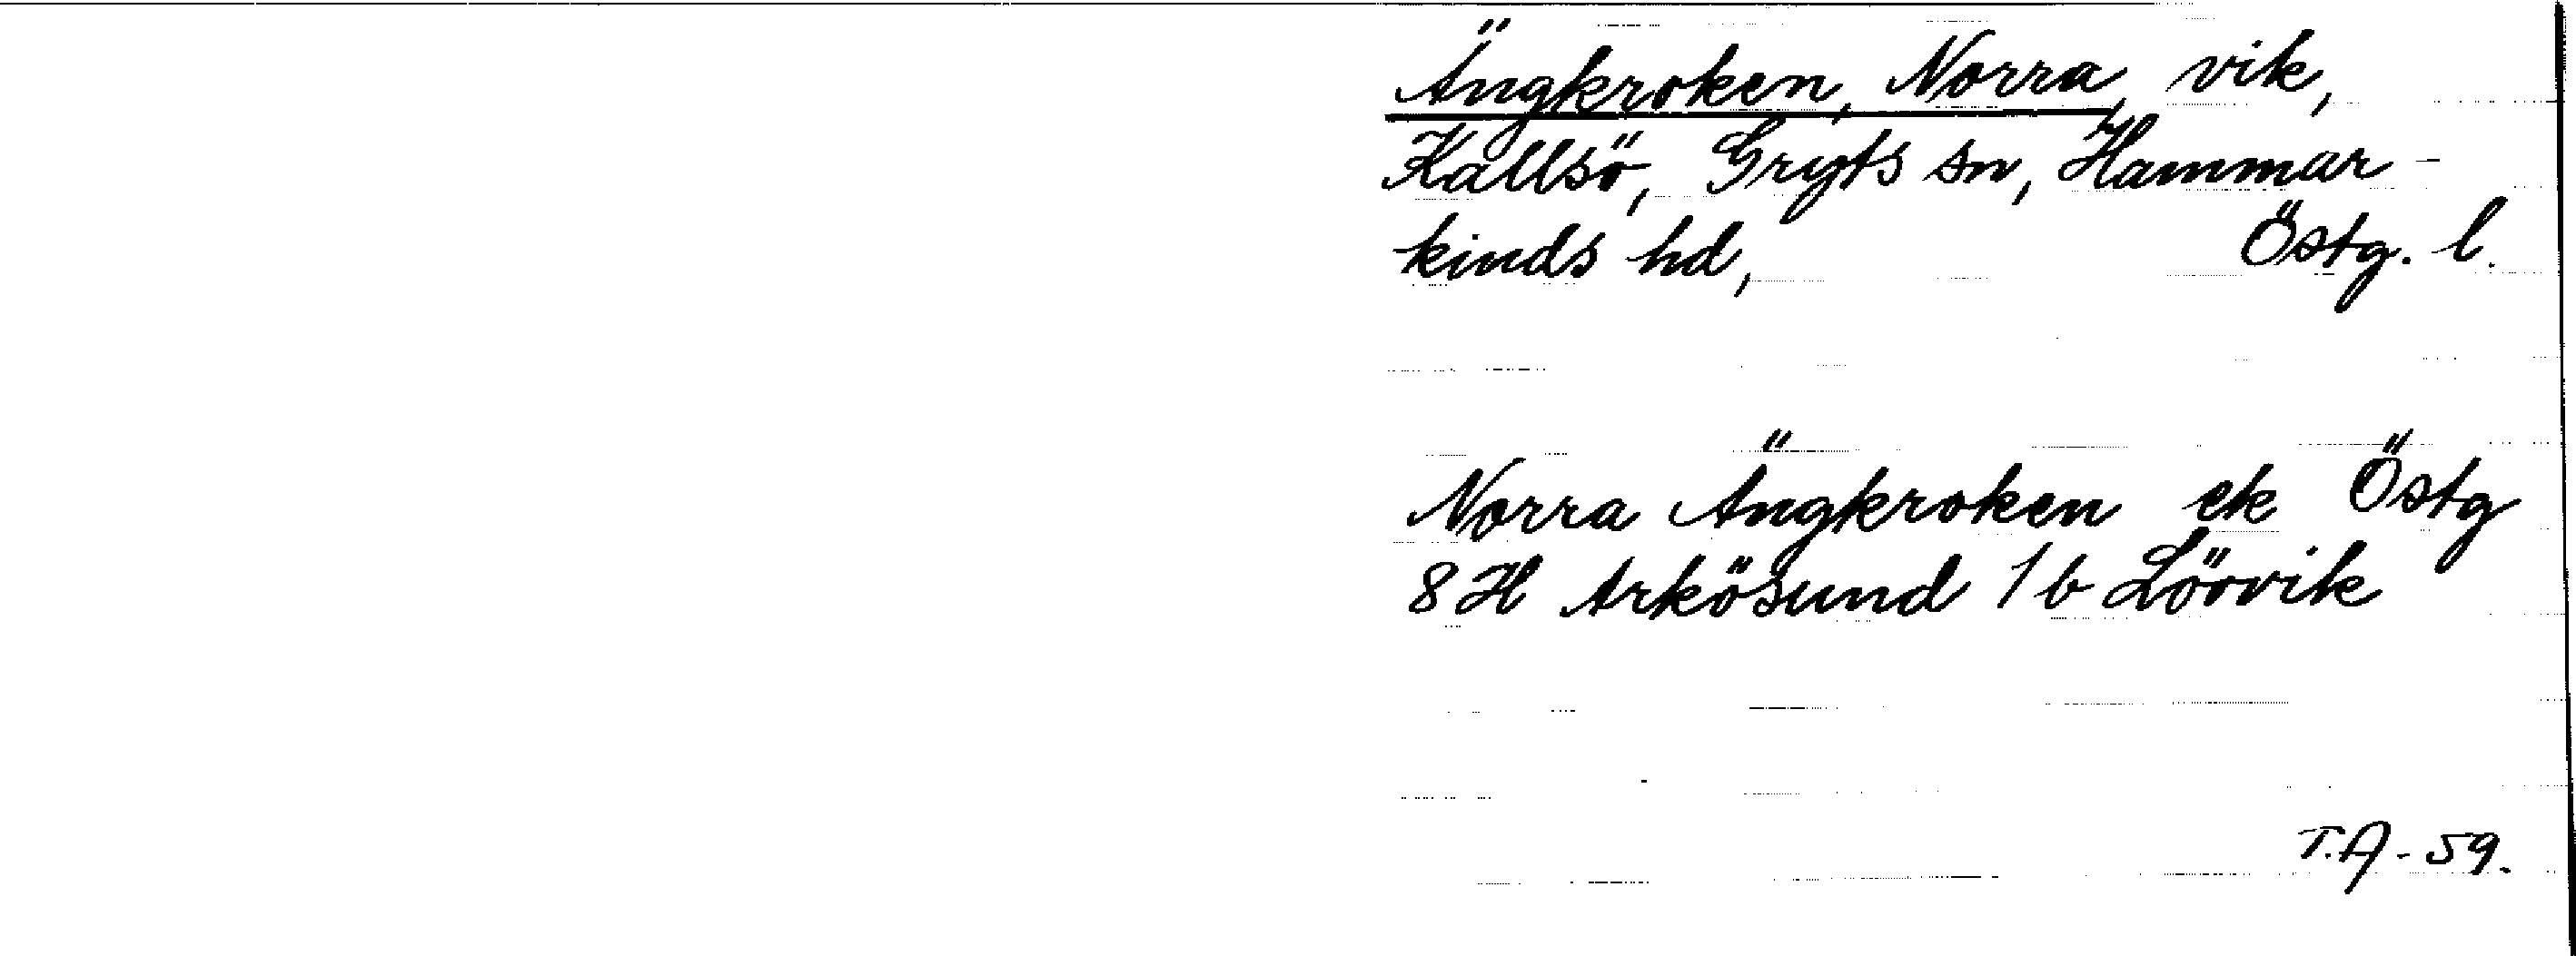 Ängkroken, Norra, vik,
Kallsö, Gryts sn, Hammar-
kinds hd, Östg. l.
Norra Ängkroken ek Östg
8 H Arkösund 1 b Lövvik
T.A - 59.